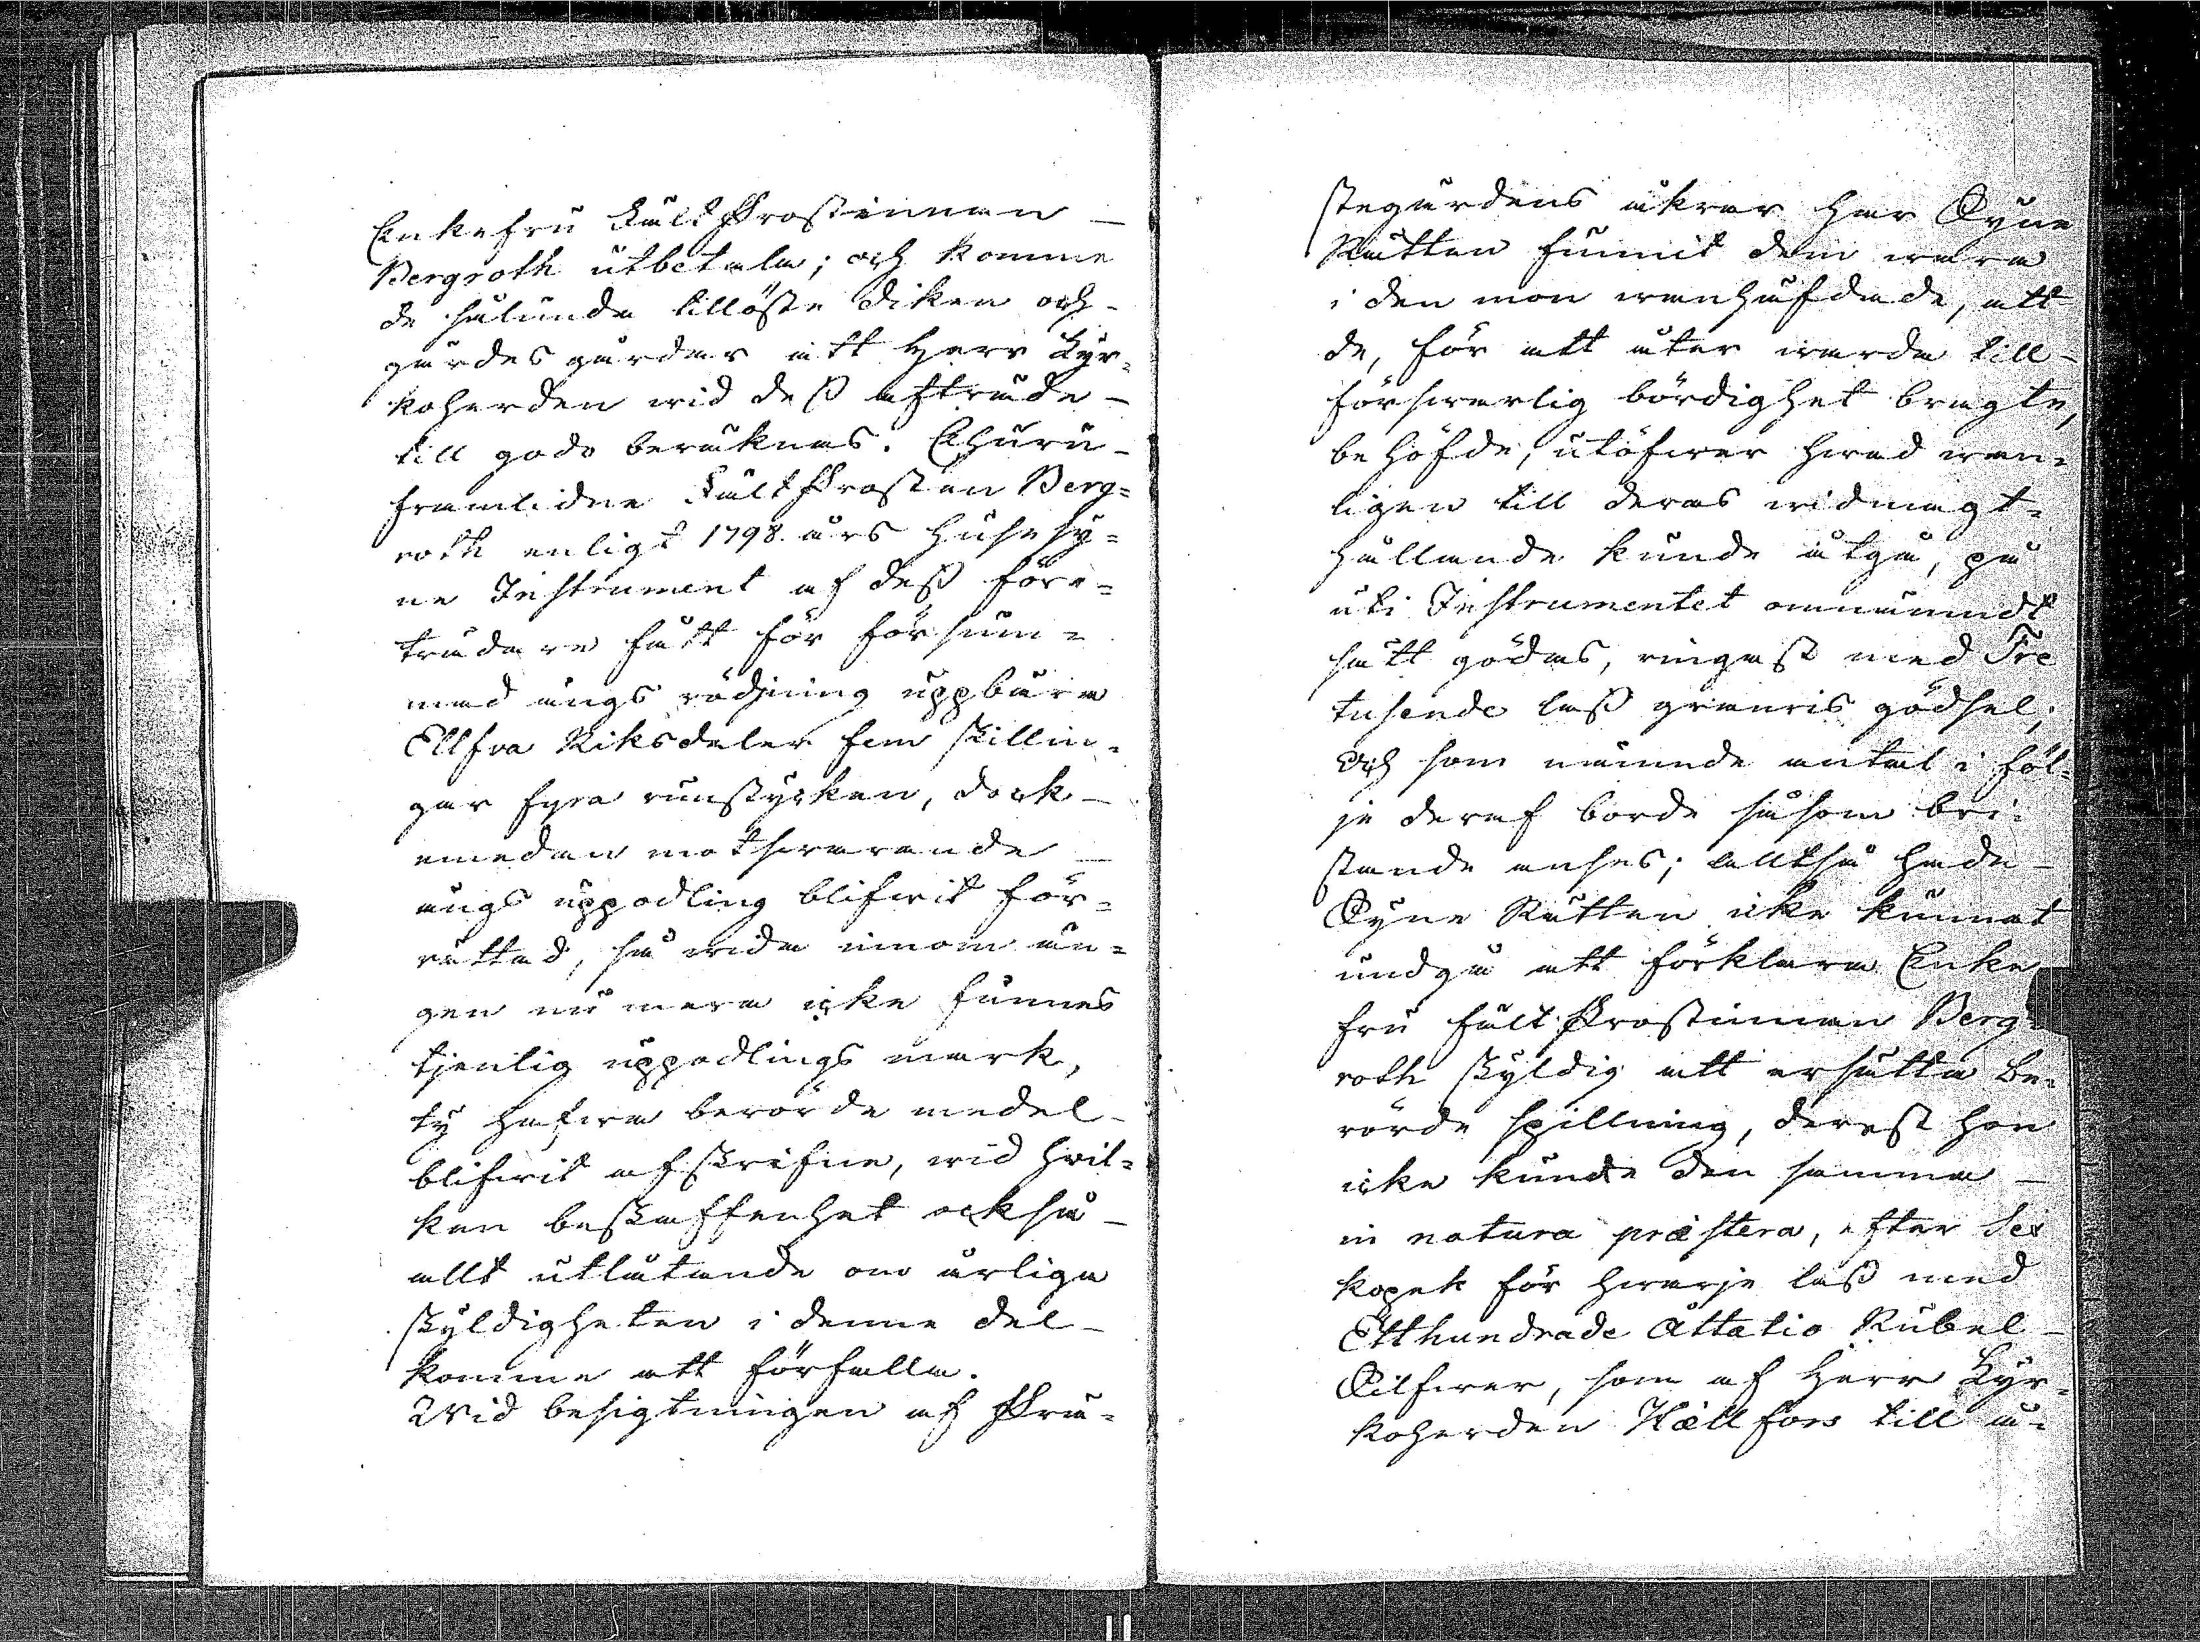 Enkefru Fält Prostinnan
Bergroth utbetala; och komme
de sålunda tillöste diken och
gärdes gårdar att Herr Kyr-
koherden wid deß afträde
till godo beräknas. Ehuru
framlidne Fält Prosten Berg-
roth enligt 1798 års husesy-
ne Instrument af deß före-
trädare fått för försum-
mad ängs rödjning uppbära
Ellfva Riksdaler fem skillin-
gar fyra runstycken, dock
emedan motswarande
ängs uppodling blifwit för-
rättad, så wida innom än-
gen nu mera icke funnes
tjenlig uppodlings mark,
ty hafwa berörde medel
blifwit afskrifne, wid hvil-
ken beskaffenhet också
allt utlåtande om årliga
skyldigheten i denne del
komme att förfalla.
Wid besigtningen af Prä-
stegårdens åkrar har Syne
Rätten funnit dem wara
i den mon wanhäfdade, att
de, för att åter warda till
förswarlig bördighet bragte,
behöfde, utöfwer hwad wan-
ligen till deras widmagt-
hållande kunde åtgå, på
uti Instrumentet omnämndt
sätt gödas, ringast med Tre
tusende laß granris gödsel,
och som nämnde antal i föl-
je deraf borde såsom bri-
stande anses; alltså hade
Syne Rätten icke kunnat
undgå att förklara Enke
fru Fält Prostinnan Berg-
roth skyldig att ersätta be-
rörde spillning, derest hon
icke kunde den samma
in natura præstera, efter Sex
kopek för hwarje laß med
Etthundrade Åttatio Rubel
Silfwer, som af Herr Kyr-
koherden Hællfors till å-